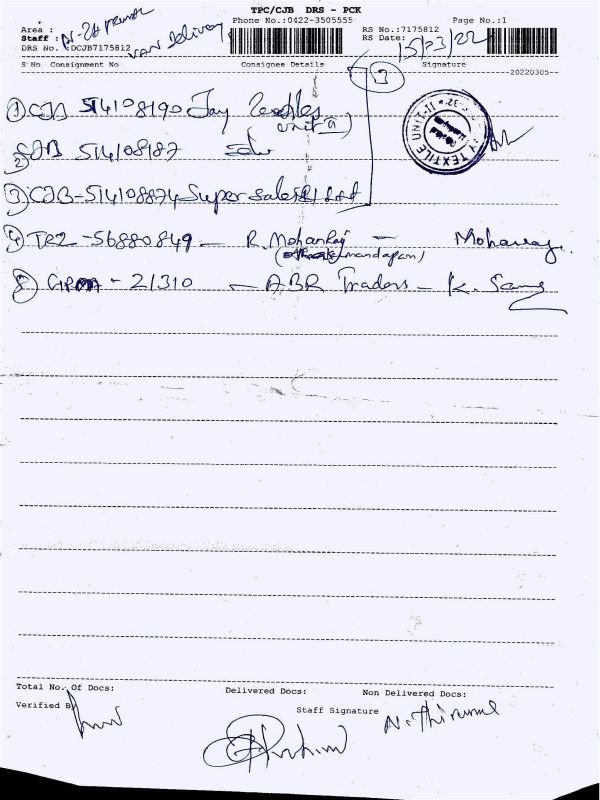 TPC/CJB DRS - PCK
Phone No.:0422-3505555 Page No.:1
Area :
Staff :
VAN Delivery
RS No.:7175812
RS Date: 15/03/22
DRS No. :DCJB7175812
S No Consignment No Consignee Details Signature
20220305
3
1 CJB 514108190 Jay Textiles
unit
2 CJB 514108187 sdw
3 CJB-514108874 Super sales Ltd
4 TRZ -56880849 - R. Mohanraj - Mohanraj.
mandapam)
5 - 21310 - ABR Traders - K.
TEXTILE UNIT-II
Total No. Of Docs: Delivered Docs: Non Delivered Docs:
Verified By
Staff Signature N. Thirumal